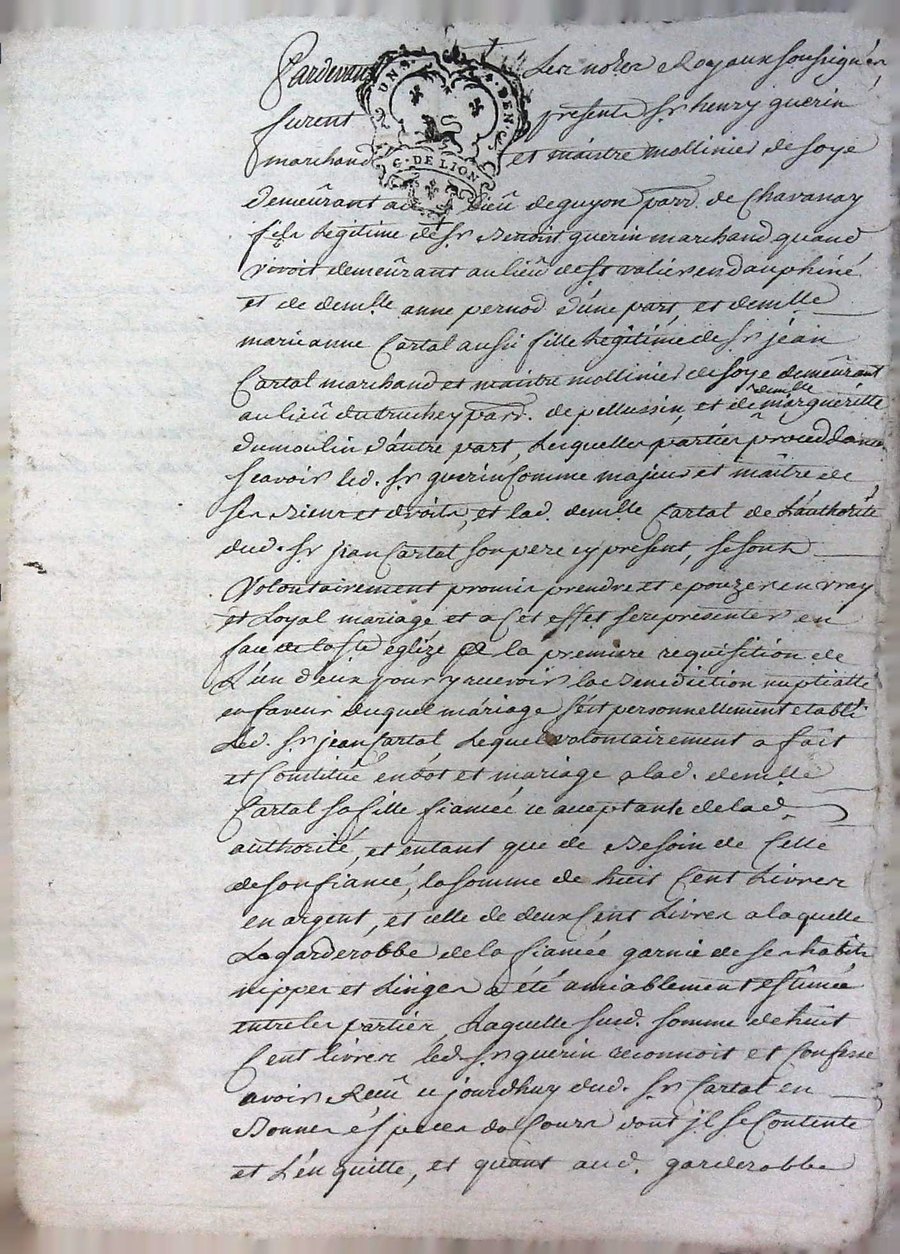 Pardevant Les no.res Royaux soussignés
furent présents sr. henry guerin
marchand et maistre mollinier de soye
UN S. 4. DEN.
G. DE LION
demeûrant au lieû de guyon parr. de Chavanay
fils legitime de sr Benoit guerin marchand quand
vivoit demeûrant au lieû de st valier en dauphiné
et de demlle anne pernod d'une part, et demlle
marie anne Cartal aussi fille legitime de sr jean
Cartal marchand et maistre mollinier de soye demeûrant
au lieû du truchey parr. de pellussin, et de demlle marguéritte
dumoulin d'autre part, Lesquelles parties proceddantes
scavoir led. sr guerin Comme majeur et maître de
ses Biens et droits, et lad. demlle Cartal de L'authorité
dud. sr jean Cartal son pere icy present, se sont
Volontairement promis prendre et epouzer en vray
et Loyal mariage et a Cet effet se représenter en
face de la ste eglize a la premiere requisition de
L'un d'eux pour y recevoir la Benediction nuptialle
en faveur duquel máriage s'est personnellement etabli
Led. sr jean Cartal Lequel volontairement a fait
et Constitué en dot et mariage a lad. demlle
Cartal sa fille fiancée ce aceptante de lad.
authorité, et entant que de Besoin de Celle
de son fiancé, la somme de huit Cent Livres
en argent, et celle de deux Cent Livres a laquelle
La garderobbe de la fiancée garnie de ses habits
nippes et Linges a été amiablement estimée
entre les parties, Laquelle susd. somme de huit
Cent livres led. sr guerin reconnoit et Confesse
avoir Reçû ce jourdhuy dud. sr Cartal en
Bonnes éspeces de Cours dont jl se Contente
et L'en quitte, et quant aud. garderobbe